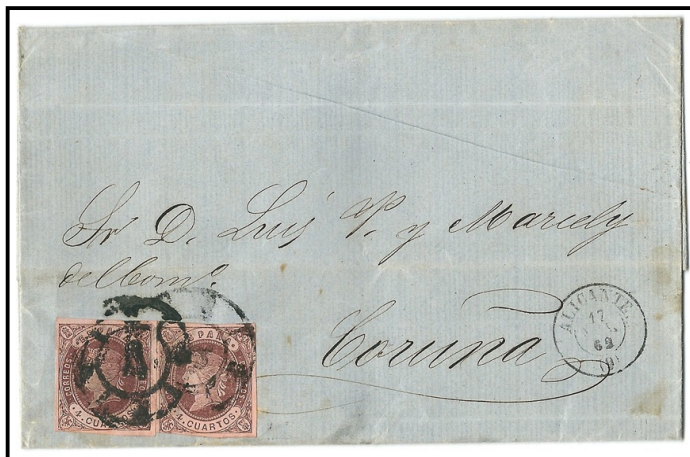 Sr D. Luis P. y Marcely
del Com.º
Coruña
ALICANTE.
17
62
(9)
CORREOS ESPAÑA
4. CUARTOS
4. CUARTOS